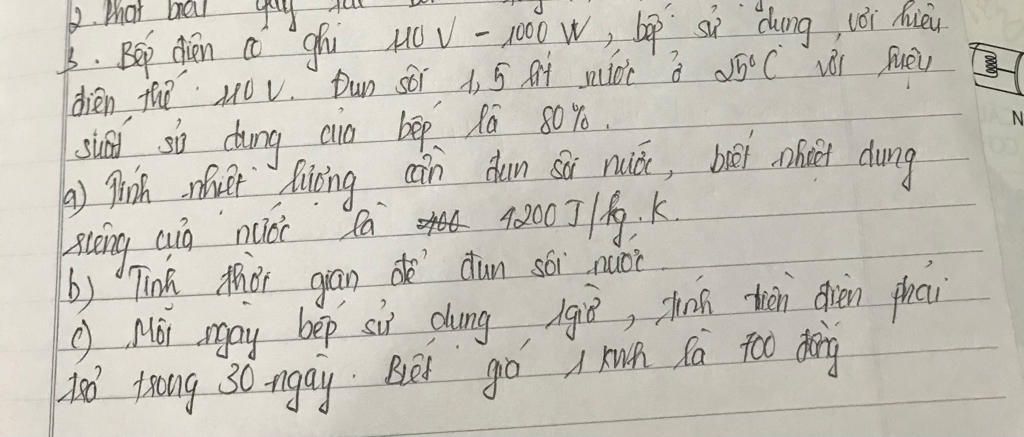 2. Phát biểu quy tắc
3. Bếp điện có ghi 110 V - 1000 W, bếp sử dụng với hiệu
điện thế 110 V. Đun sôi 1,5 lít nước ở 25°C với hiệu
suất sử dụng của bếp là 80%.
a) Tính nhiệt lượng cần đun sôi nước, biết nhiệt dung
riêng của nước là 4200 J/kg.K.
b) Tính thời gian để đun sôi nước
c) Mỗi ngày bếp sử dụng 1 giờ, tính tiền điện phải
trả trong 30 ngày. Biết giá 1 KWh là 700 đồng
N